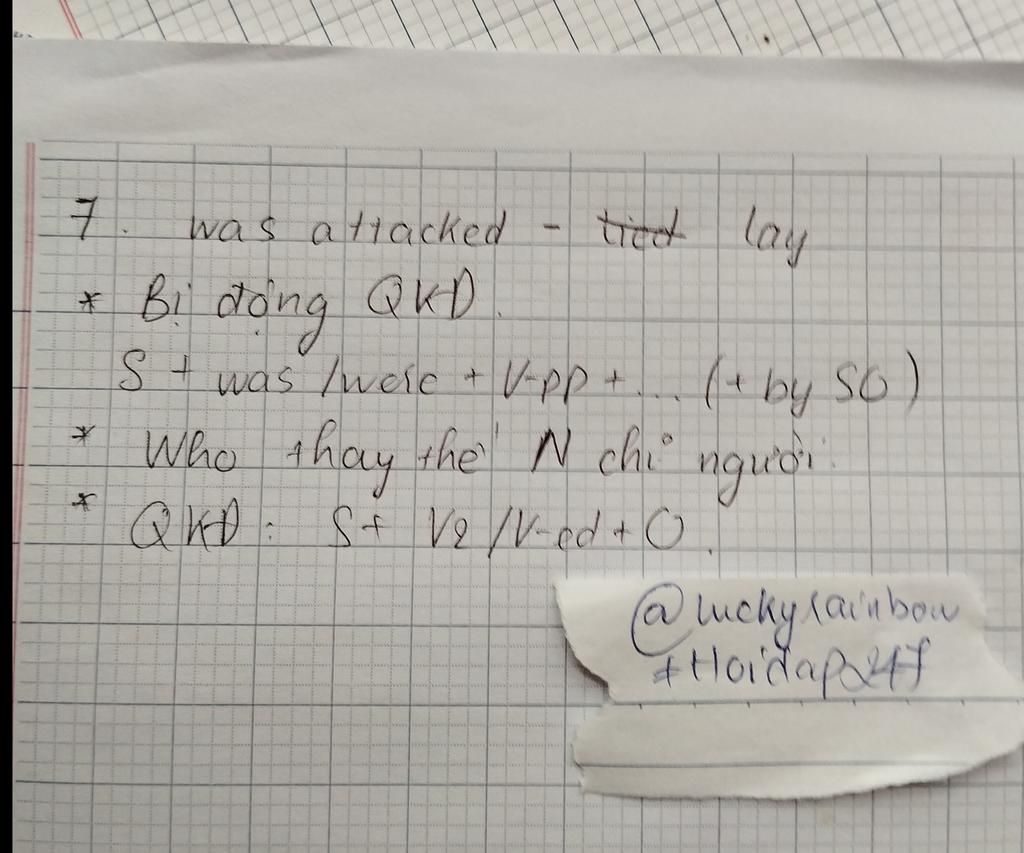 7. was attacked - lay
* Bị động QKD.
S + was /were + V-pp + ... (+ by SO)
* Who thay thế N chỉ người.
* QKD: S + V2 /V-ed + O.
@luckyrainbow
#Hoidap247